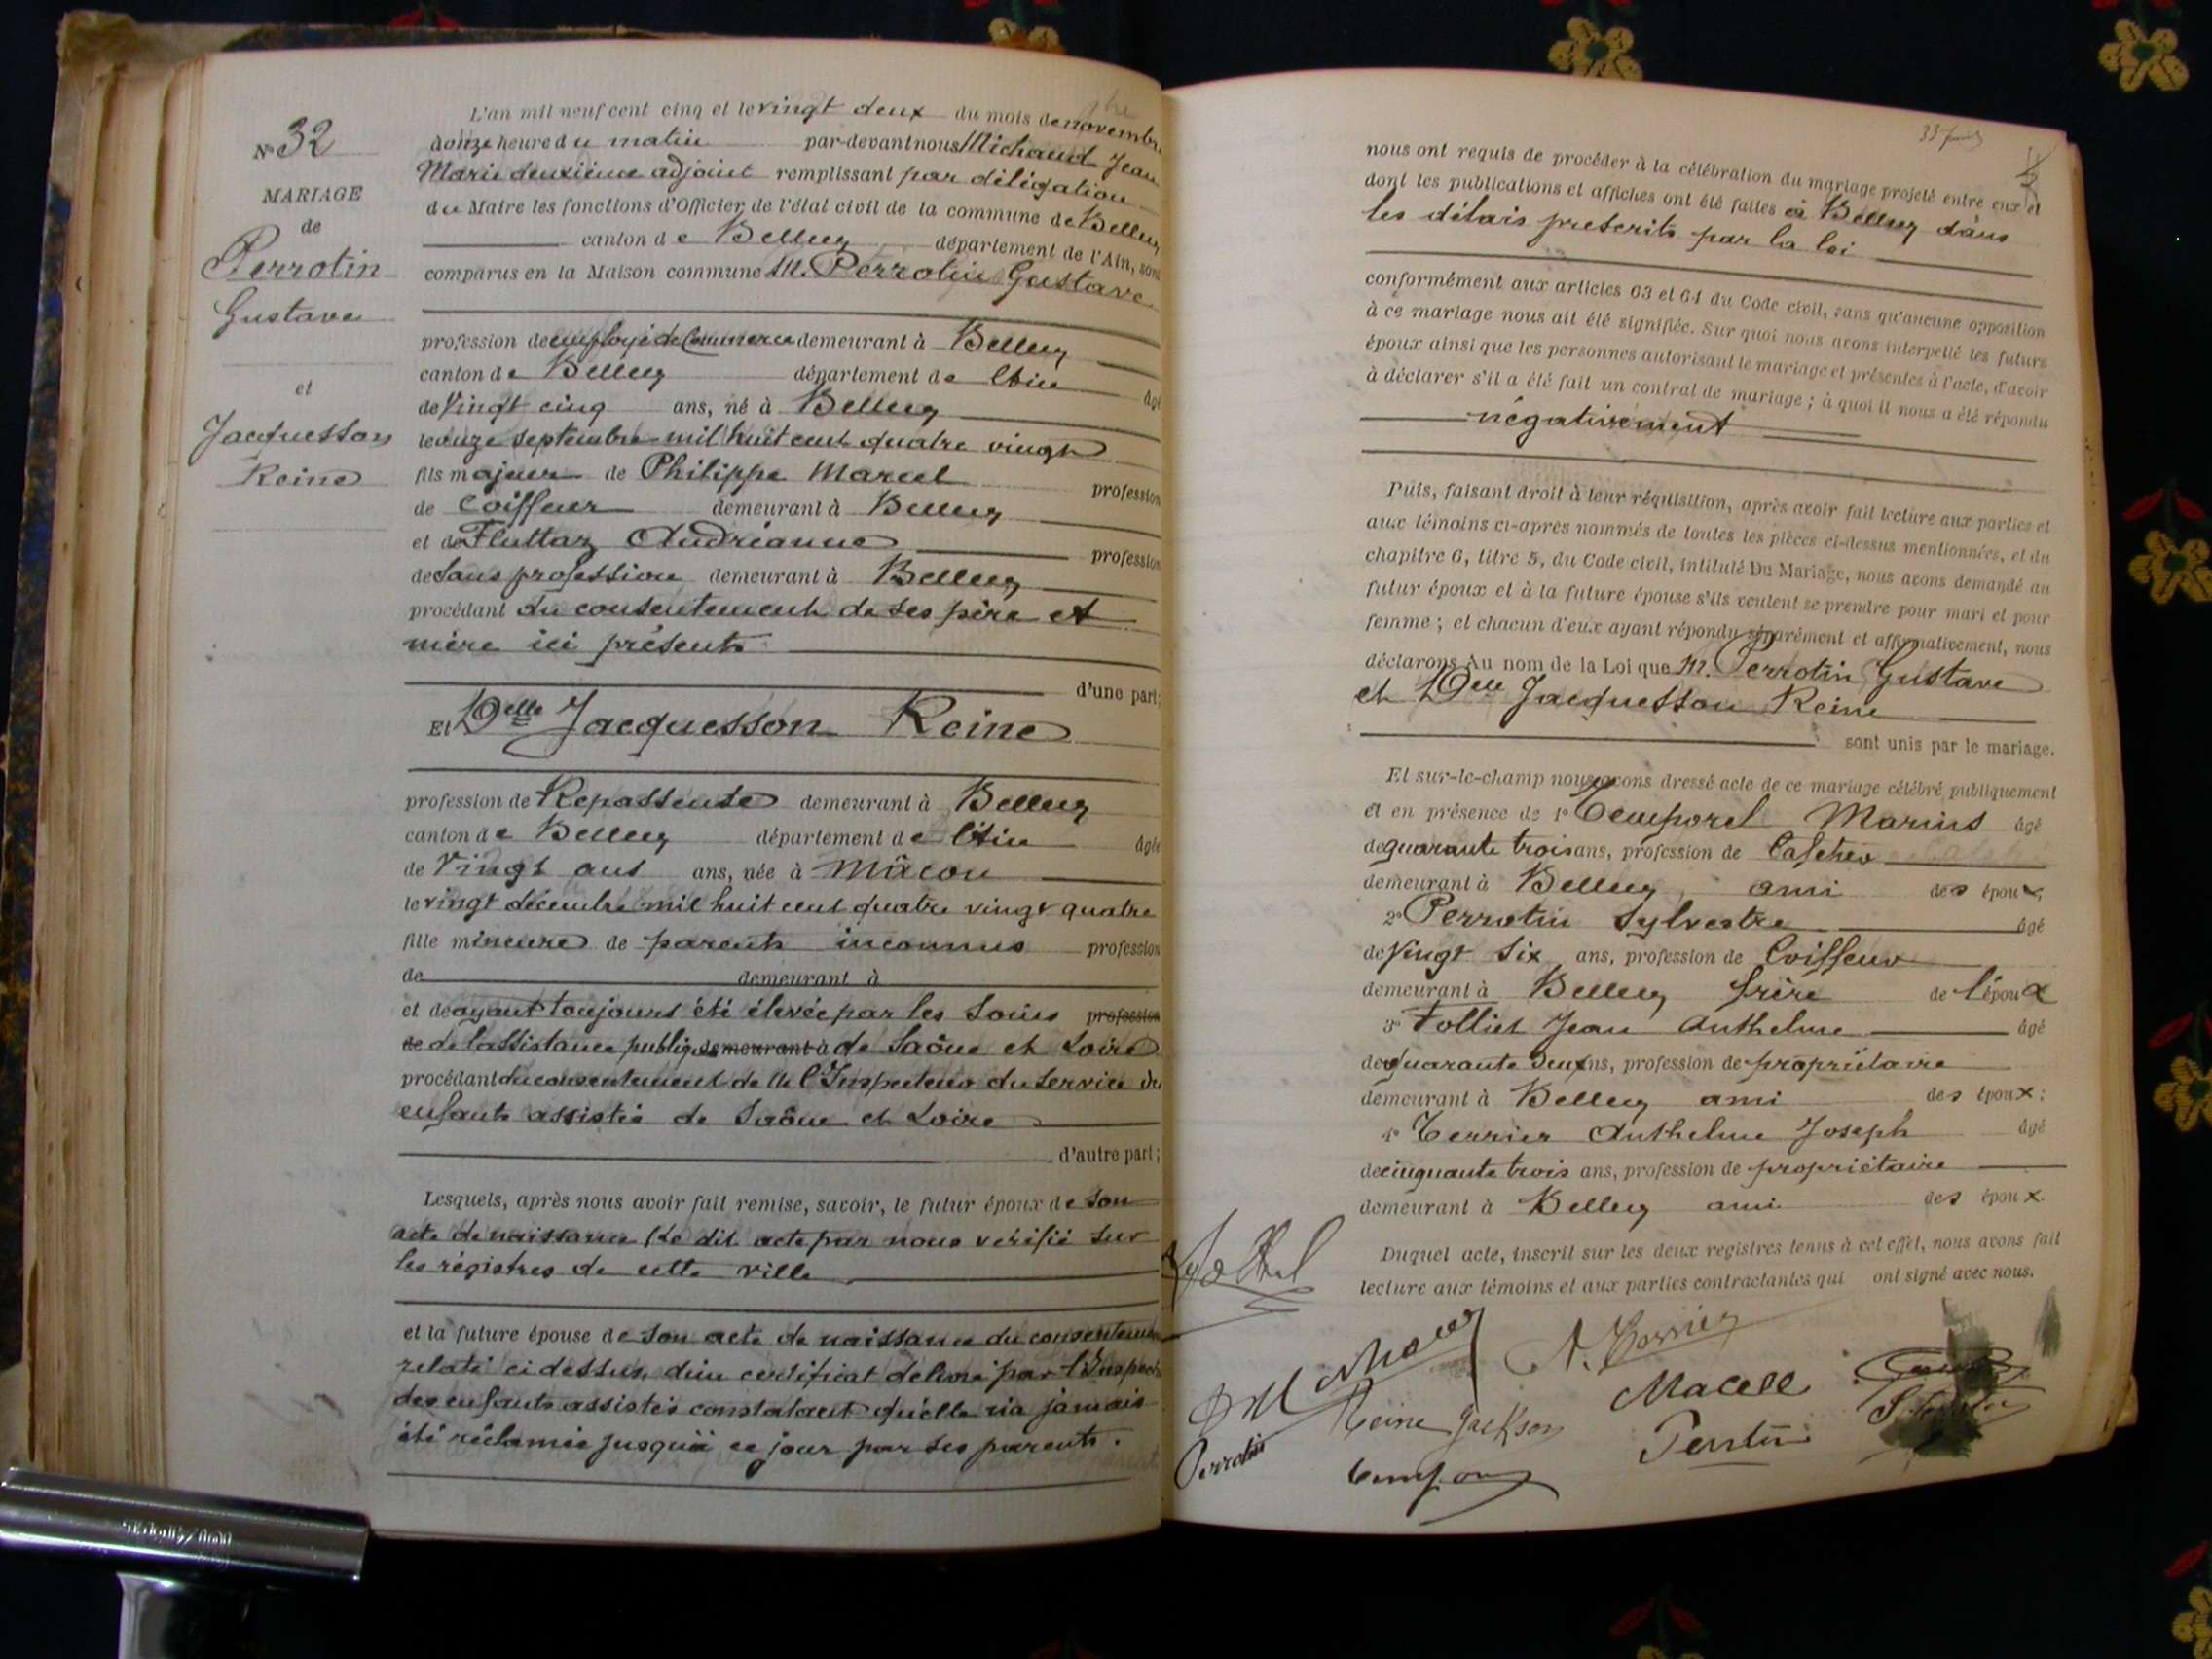 N° 32
MARIAGE
de
Perrotin
Gustave
et
Jacquesson
Reine
L'an mil neuf cent cinq et le vingt deux du mois de novembre
à onze heure du matin par-devant nous Michaud Jean
Marie deuxième adjoint remplissant par délégation
du Maire les fonctions d'Officier de l'état civil de la commune de Belley
canton de Belley département de l'Ain, sont
comparus en la Maison commune M. Perrotin Gustave
profession de employé de Commerce demeurant à Belley
canton de Belley département de l'Ain âgé
de Vingt cinq ans, né à Belley
le onze septembre mil huit cent quatre vingt
fils majeur de Philippe Marcel profession
de Coiffeur demeurant à Belley
et de Fluttaz Andréanne profession
de Sans profession demeurant à Belley
procédant du consentement de ses père et
mère ici présents
d'une part;
Et Delle Jacquesson Reine
profession de Repasseuse demeurant à Belley
canton de Belley département de l'Ain âgée
de Vingt ans ans, née à Mâcon
le vingt décembre mil huit cent quatre vingt quatre
fille mineure de parents inconnus profession
de demeurant à
et de ayant toujours été élevée par les soins profession
de de l'assistance publique demeurant à de Saône et Loire
procédant du consentement de M l'Inspecteur du service des
enfants assistés de Saône et Loire
d'autre part;
Lesquels, après nous avoir fait remise, savoir, le futur époux de son
acte de naissance (le dit acte par nous vérifié sur
les régistres de cette ville
et la future épouse de son acte de naissance du consentement
relaté ci dessus, d'un certificat délivré par l'Inspect
des enfants assistés constatant qu'elle n'a jamais
été réclamée jusqu'à ce jour par ses parents.
nous ont requis de procéder à la célébration du mariage projeté entre eux et
dont les publications et affiches ont été faites à Belley dans
les délais prescrits par la loi
conformément aux articles 63 et 64 du Code civil, sans qu'aucune opposition
à ce mariage nous ait été signifiée. Sur quoi nous avons interpellé les futurs
époux ainsi que les personnes autorisant le mariage et présentes à l'acte, d'avoir
à déclarer s'il a été fait un contrat de mariage; à quoi il nous a été répondu
négativement
Puis, faisant droit à leur réquisition, après avoir fait lecture aux parties et
aux témoins ci-après nommés de toutes les pièces ci-dessus mentionnées, et du
chapitre 6, titre 5, du Code civil, intitulé Du Mariage, nous avons demandé au
futur époux et à la future épouse s'ils veulent se prendre pour mari et pour
femme; et chacun d'eux ayant répondu séparément et affirmativement, nous
déclarons Au nom de la Loi que M. Perrotin Gustave
et Delle Jacquesson Reine
sont unis par le mariage.
Et sur-le-champ nous avons dressé acte de ce mariage célébré publiquement
et en présence de 1° Temporel Marius âgé
de quarante trois ans, profession de Cafetier
demeurant à Belley, ami des époux;
2° Perrotin Sylvestre âgé
de Vingt six ans, profession de Coiffeur
demeurant à Belley frère de l'époux
3° Folliet Jean Anthelme âgé
de quarante deux ans, profession de propriétaire
demeurant à Belley ami des époux;
4° Terrier Anthelme Joseph âgé
de cinquante trois ans, profession de propriétaire
demeurant à Belley ami des époux.
Duquel acte, inscrit sur les deux registres tenus à cet effet, nous avons fait
lecture aux témoins et aux parties contractantes qui ont signé avec nous.
A. Terrier
Reine Jackson
Perrotin